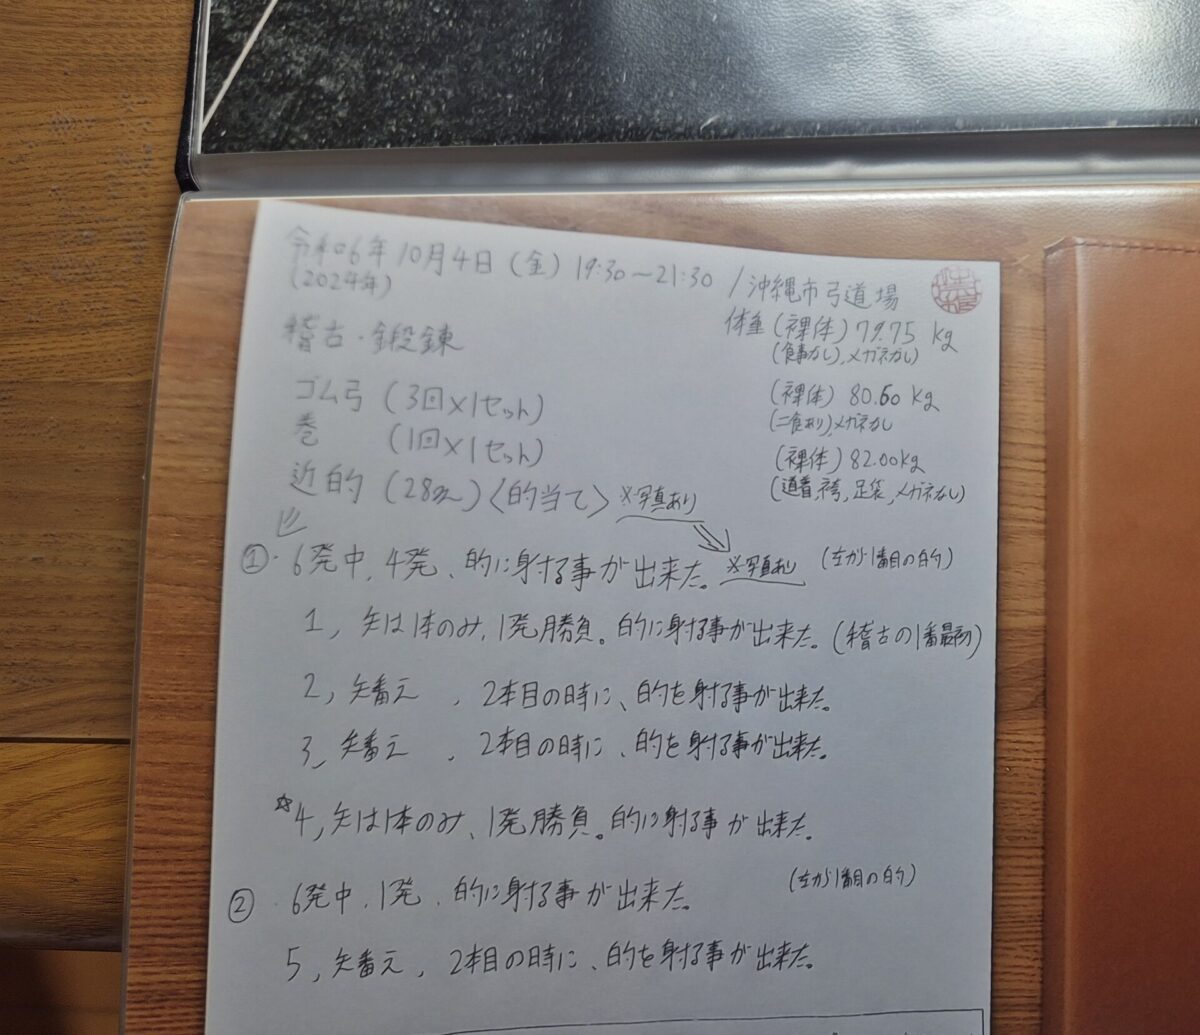 令和6年10月4日(金) 19:30〜21:30 / 沖縄市弓道場
(2024年)
体重(裸体)79.75 kg
(食事なし),メガネなし
稽古・鍛錬
(裸体) 80.60 kg
(二食あり)メガネなし
ゴム弓 (3回×1セット)
巻 (1回×1セット)
(裸体) 82.00kg
(道着,袴,足袋,メガネなし)
近的 (28m)〈的当て〉※写真あり
①・6発中、4発、的に射する事が出来た。※写真あり (左から1番目の的)
1, 矢は1本のみ、1発勝負。的に射する事が出来た。(稽古の1番最初)
2, 矢番え 、2本目の時に、的を射する事が出来た。
3, 矢番え 、2本目の時に、的を射する事が出来た。
☆4, 矢は1本のみ、1発勝負。的に射する事が出来た。
② 6発中、1発、的に射する事が出来た。 (左から1番目の的)
5, 矢番え、2本目の時に、的を射する事が出来た。